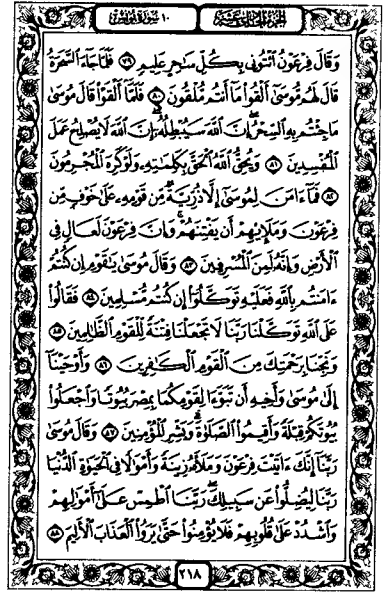 الجزء الحادي عشر
١٠ سورة يونس
وَقَالَ فِرْعَوْنُ ٱئْتُونِى بِكُلِّ سَٰحِرٍ عَلِيمٍ ٧٩ فَلَمَّا جَآءَ ٱلسَّحَرَةُ
قَالَ لَهُم مُّوسَىٰٓ أَلْقُوا۟ مَآ أَنتُم مُّلْقُونَ ٨٠ فَلَمَّآ أَلْقَوْا۟ قَالَ مُوسَىٰ
مَا جِئْتُم بِهِ ٱلسِّحْرُ ۖ إِنَّ ٱللَّهَ سَيُبْطِلُهُۥٓ ۖ إِنَّ ٱللَّهَ لَا يُصْلِحُ عَمَلَ
ٱلْمُفْسِدِينَ ٨١ وَيُحِقُّ ٱللَّهُ ٱلْحَقَّ بِكَلِمَٰتِهِۦ وَلَوْ كَرِهَ ٱلْمُجْرِمُونَ
٨٢ فَمَآ ءَامَنَ لِمُوسَىٰٓ إِلَّا ذُرِّيَّةٌ مِّن قَوْمِهِۦ عَلَىٰ خَوْفٍ مِّن
فِرْعَوْنَ وَمَلَإِي۟هِمْ أَن يَفْتِنَهُمْ ۚ وَإِنَّ فِرْعَوْنَ لَعَالٍ فِى
ٱلْأَرْضِ وَإِنَّهُۥ لَمِنَ ٱلْمُسْرِفِينَ ٨٣ وَقَالَ مُوسَىٰ يَٰقَوْمِ إِن كُنتُمْ
ءَامَنتُم بِٱللَّهِ فَعَلَيْهِ تَوَكَّلُوٓا۟ إِن كُنتُم مُّسْلِمِينَ ٨٤ فَقَالُوا۟
عَلَى ٱللَّهِ تَوَكَّلْنَا رَبَّنَا لَا تَجْعَلْنَا فِتْنَةً لِّلْقَوْمِ ٱلظَّٰلِمِينَ ٨٥
وَنَجِّنَا بِرَحْمَتِكَ مِنَ ٱلْقَوْمِ ٱلْكَٰفِرِينَ ٨٦ وَأَوْحَيْنَآ
إِلَىٰ مُوسَىٰ وَأَخِيهِ أَن تَبَوَّءَا لِقَوْمِكُمَا بِمِصْرَ بُيُوتًا وَٱجْعَلُوا۟
بُيُوتَكُمْ قِبْلَةً وَأَقِيمُوا۟ ٱلصَّلَوٰةَ ۗ وَبَشِّرِ ٱلْمُؤْمِنِينَ ٨٧ وَقَالَ مُوسَىٰ
رَبَّنَآ إِنَّكَ ءَاتَيْتَ فِرْعَوْنَ وَمَلَأَهُۥ زِينَةً وَأَمْوَٰلًا فِى ٱلْحَيَوٰةِ ٱلدُّنْيَا
رَبَّنَا لِيُضِلُّوا۟ عَن سَبِيلِكَ ۖ رَبَّنَا ٱطْمِسْ عَلَىٰٓ أَمْوَٰلِهِمْ
وَٱشْدُدْ عَلَىٰ قُلُوبِهِمْ فَلَا يُؤْمِنُوا۟ حَتَّىٰ يَرَوُا۟ ٱلْعَذَابَ ٱلْأَلِيمَ ٨٨
٢١٨